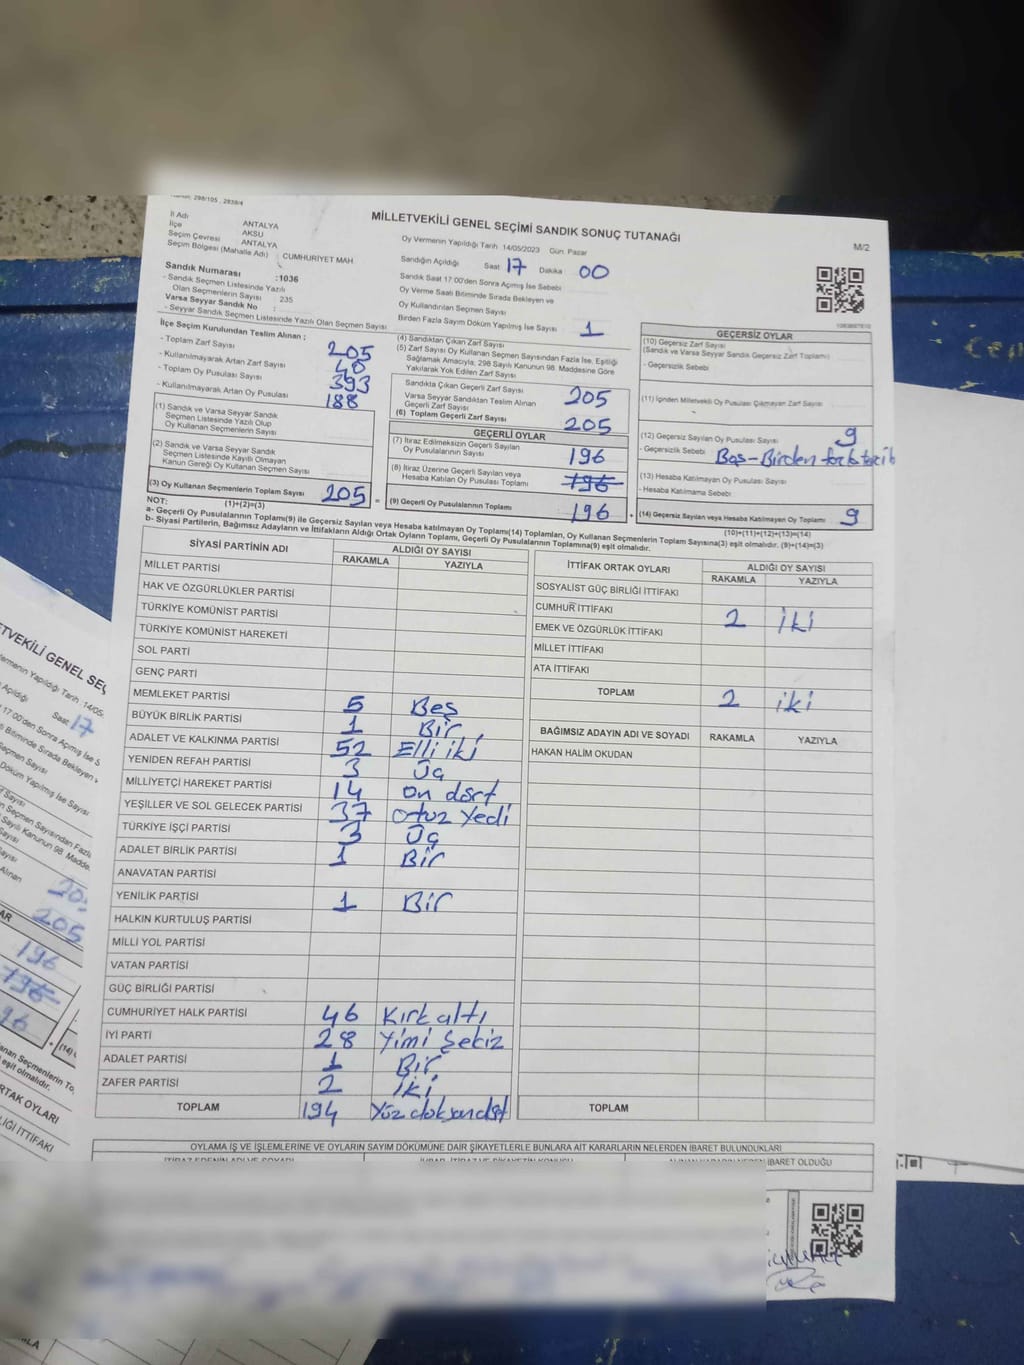 298/105 , 2839/4
MİLLETVEKİLİ GENEL SEÇİMİ SANDIK SONUÇ TUTANAĞI
M/2
İl Adı ANTALYA
İlçe AKSU
Seçim Çevresi ANTALYA
Seçim Bölgesi (Mahalle Adı) : CUMHURİYET MAH
Sandık Numarası :1036
- Sandık Seçmen Listesinde Yazılı
Olan Seçmenlerin Sayısı : 235
Varsa Seyyar Sandık No :
- Seyyar Sandık Seçmen Listesinde Yazılı Olan Seçmen Sayısı
Oy Vermenin Yapıldığı Tarih 14/05/2023 Gün Pazar
Sandığın Açıldığı Saat 17 Dakika 00
Sandık Saat 17:00'den Sonra Açılmış İse Sebebi
Oy Verme Saati Bitiminde Sırada Bekleyen ve
Oy Kullandırılan Seçmen Sayısı
Birden Fazla Sayım Döküm Yapılmış İse Sayısı 1
İlçe Seçim Kurulundan Teslim Alınan ;
- Toplam Zarf Sayısı 205
- Kullanılmayarak Artan Zarf Sayısı
- Toplam Oy Pusulası Sayısı 393
- Kullanılmayarak Artan Oy Pusulası 188
(1) Sandık ve Varsa Seyyar Sandık
Seçmen Listesinde Yazılı Olup
Oy Kullanan Seçmenlerin Sayısı
(2) Sandık ve Varsa Seyyar Sandık
Seçmen Listesinde Kayıtlı Olmayan
Kanun Gereği Oy Kullanan Seçmen Sayısı
(3) Oy Kullanan Seçmenlerin Toplam Sayısı 205 =
(1)+(2)=(3)
(4) Sandıktan Çıkan Zarf Sayısı
(5) Zarf Sayısı Oy Kullanan Seçmen Sayısından Fazla İse, Eşitliği
Sağlamak Amacıyla, 298 Sayılı Kanunun 98. Maddesine Göre
Yakılarak Yok Edilen Zarf Sayısı
Sandıkta Çıkan Geçerli Zarf Sayısı 205
Varsa Seyyar Sandıktan Teslim Alınan
Geçerli Zarf Sayısı
(6) Toplam Geçerli Zarf Sayısı 205
GEÇERLİ OYLAR
(7) İtiraz Edilmeksizin Geçerli Sayılan
Oy Pusulalarının Sayısı 196
(8) İtiraz Üzerine Geçerli Sayılan veya
Hesaba Katılan Oy Pusulası Toplamı 196
(9) Geçerli Oy Pusulalarının Toplamı 196 +
GEÇERSİZ OYLAR
(10) Geçersiz Zarf Sayısı
(Sandık ve Varsa Seyyar Sandık Geçersiz Zarf Toplamı)
- Geçersizlik Sebebi
(11) İçinden Milletvekili Oy Pusulası Çıkmayan Zarf Sayısı
(12) Geçersiz Sayılan Oy Pusulası Sayısı 9
- Geçersizlik Sebebi Boş-Birden fazla tercih
(13) Hesaba Katılmayan Oy Pusulası Sayısı
- Hesaba Katılmama Sebebi
(14) Geçersiz Sayılan veya Hesaba Katılmayan Oy Toplamı 9
(10)+(11)+(12)+(13)=(14)
NOT:
a- Geçerli Oy Pusulalarının Toplamı(9) ile Geçersiz Sayılan veya Hesaba katılmayan Oy Toplamı(14) Toplamları, Oy Kullanan Seçmenlerin Toplam Sayısına(3) eşit olmalıdır. (9)+(14)=(3)
b- Siyasi Partilerin, Bağımsız Adayların ve İttifakların Aldığı Ortak Oyların Toplamı, Geçerli Oy Pusulalarının Toplamına(9) eşit olmalıdır.
SİYASİ PARTİNİN ADI ALDIĞI OY SAYISI
RAKAMLA YAZIYLA
MİLLET PARTİSİ
HAK VE ÖZGÜRLÜKLER PARTİSİ
TÜRKİYE KOMÜNİST PARTİSİ
TÜRKİYE KOMÜNİST HAREKETİ
SOL PARTİ
GENÇ PARTİ
MEMLEKET PARTİSİ 5 Beş
BÜYÜK BİRLİK PARTİSİ 1 Bir
ADALET VE KALKINMA PARTİSİ 52 Elli iki
YENİDEN REFAH PARTİSİ 3 Üç
MİLLİYETÇİ HAREKET PARTİSİ 14 on dört
YEŞİLLER VE SOL GELECEK PARTİSİ 37 otuz yedi
TÜRKİYE İŞÇİ PARTİSİ 3 Üç
ADALET BİRLİK PARTİSİ 1 Bir
ANAVATAN PARTİSİ
YENİLİK PARTİSİ 1 Bir
HALKIN KURTULUŞ PARTİSİ
MİLLİ YOL PARTİSİ
VATAN PARTİSİ
GÜÇ BİRLİĞİ PARTİSİ
CUMHURİYET HALK PARTİSİ 46 Kırk altı
İYİ PARTİ 28 Yimi Sekiz
ADALET PARTİSİ 1 Bir
ZAFER PARTİSİ 2 iki
TOPLAM 194 Yüz doksandört
İTTİFAK ORTAK OYLARI ALDIĞI OY SAYISI
RAKAMLA YAZIYLA
SOSYALİST GÜÇ BİRLİĞİ İTTİFAKI
CUMHUR İTTİFAKI 2 iki
EMEK VE ÖZGÜRLÜK İTTİFAKI
MİLLET İTTİFAKI
ATA İTTİFAKI
TOPLAM 2 iki
BAĞIMSIZ ADAYIN ADI VE SOYADI RAKAMLA YAZIYLA
HAKAN HALİM OKUDAN
TOPLAM
OYLAMA İŞ VE İŞLEMLERİNE VE OYLARIN SAYIM DÖKÜMÜNE DAİR ŞİKAYETLERLE BUNLARA AİT KARARLARIN NELERDEN İBARET BULUNDUKLARI
İBARET OLDUĞU